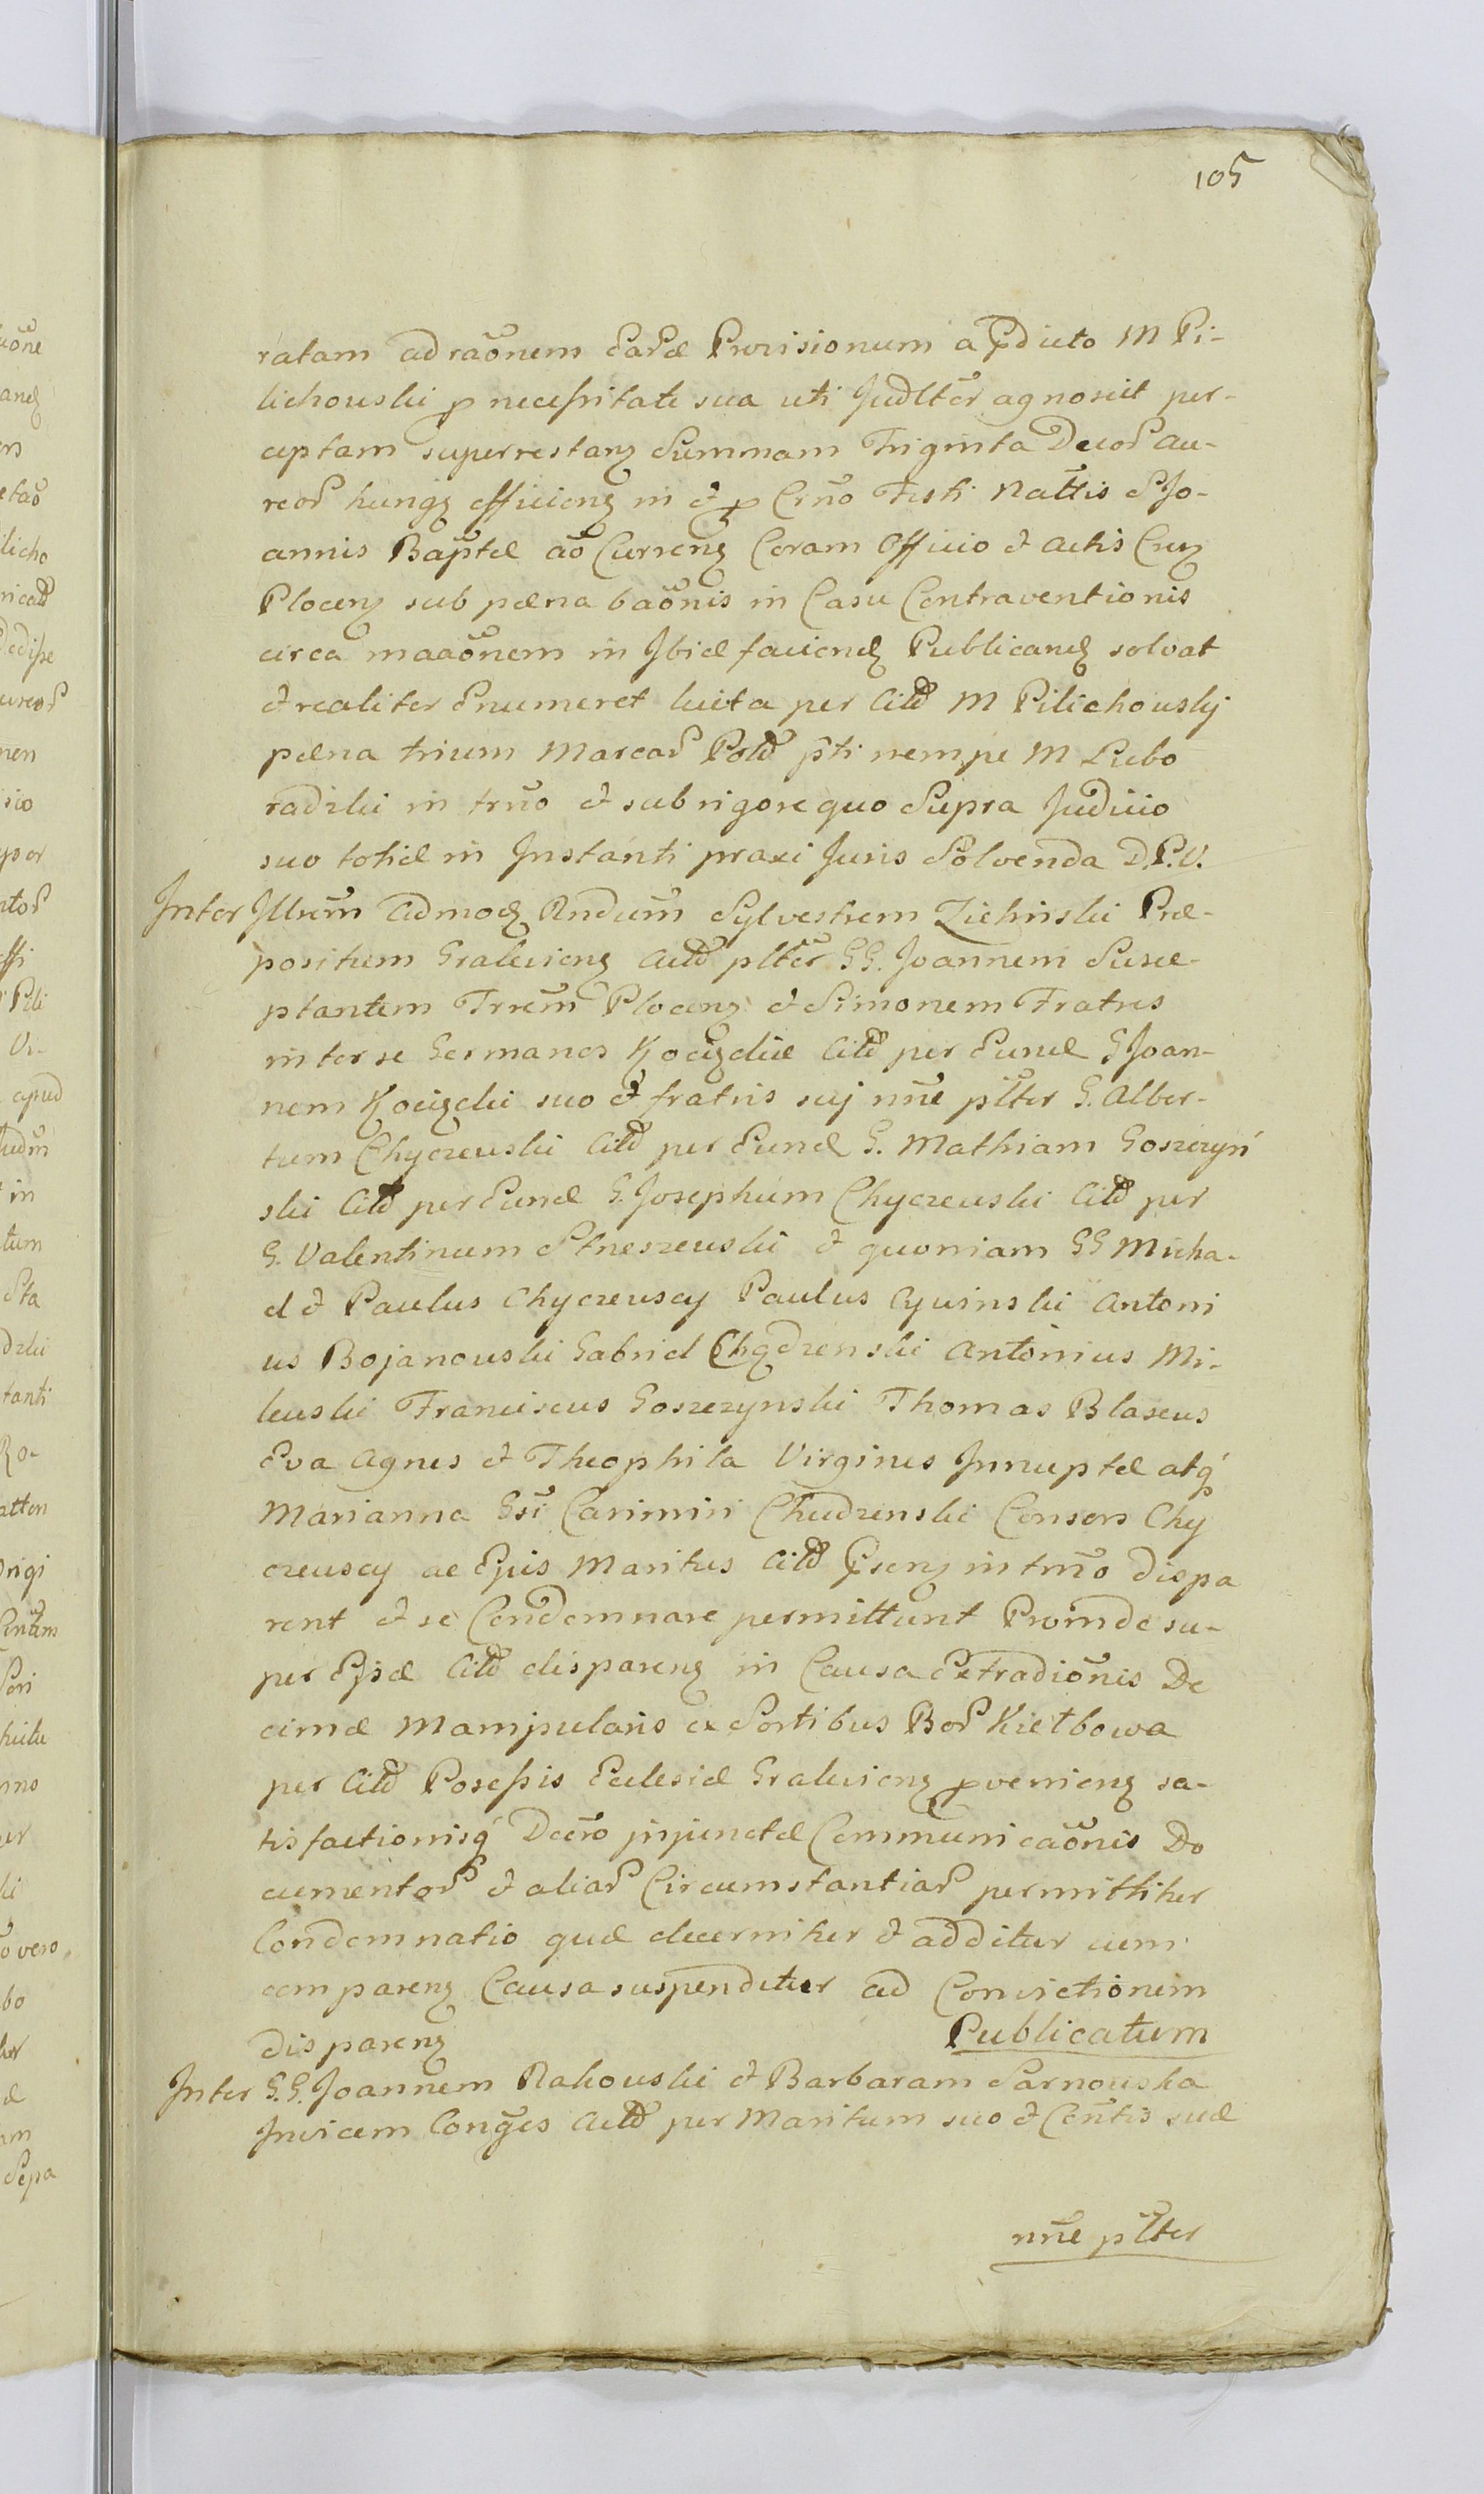 105
ratam ad raõnem Earũ Provisionum a prædicto M Pi-
lichowski p necessitate sua uti Judltẽr agnoscit per-
ceptam superrestanꝫ Summam Triginta Decoꝝ Au-
reoꝝ hungꝫ efficienꝫ in & p Crño Festi Nattis S Jo-
annis Bapttæ aõ Currenꝫ Coram Officio & actis Crenꝫ
Plocenꝫ sub pœna baõnis in Casu Contraventionis
circa maaõnem in Jbid faciendꝫ Publicandꝫ solvat
& realiter Enumeret luita per Citd M Pilichowskj
pœna trium Marcaꝝ Pold pti nempe M Lubo
radzki in trño & sub rigore quo Supra Judicio
suo totid in Instanti praxi Juris Solvenda D.P.V.
Inter Jllrẽm Admodꝫ Rndum Sylvestrem Zielinski Præ-
positum Gralevienꝫ Actd pltẽr GG. Joannem Susce-
ptantem Trrẽm Plocenꝫ & Simonem Fratres
inter se Germanos Kocięckie Citd per Eund G Joan-
nem Kocięcki suo & fratris suj nñe pltẽr G. Alber-
tum Chyczewski Citd per Eund G. Mathiam Goszczyń
ski Citd per Eund G. Josephum Chyczewski Citd per
G. Valentinum Strzeszewski & quoniam GG Micha-
el & Paulus Chyczewscy Paulus Cywinski Antoni
us Bojanowski Gabriel Chądzenski Antonius Mi-
lewski Franciscus Goszczynski Thomas Blaseus
Eva Agnes & Theophila Virgines Innuptæ atq́
Marianna Gsi Casimiri Chudzenski Consors Chy
czewscy ac Ejus Maritus Citd Pꝫsenꝫ in trño dispa
rent & se Condemnare permittunt Proinde su-
per Ejsd Citd disparenꝫ in Causa Extradiõnis De
cimæ Manipularis ex Sortibus Boꝝ Kiełbowa
per Citd Posessis Ecclesiæ Gralevienꝫ pvenienꝫ sa-
tisfactionisq́ Decrõ injunctæ Communicaõnis Do
cumentoꝝ & aliaꝝ Circumstantiaꝝ permittitur
Condemnatio quæ decernitur & additur cum
comparenꝫ Causa suspenditur ad Convictionem
disparenꝫ Publicatum
Inter G.G. Joannem Rakowski & Barbaram Sarnowska
Invicem Conges Actd per Maritum suo & Contis suæ
nñe pltẽr